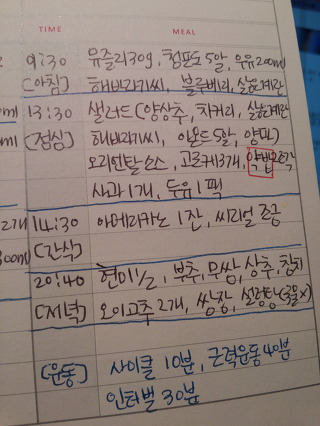 TIME MEAL
9:30 뮤즐리30g, 청포도 5알, 우유200ml
(아침) 해바라기씨, 블루베리, 삶은계란
13:30 샐러드(양상추, 치커리, 삶은계란
(점심) 해바라기씨, 아몬드5알, 양파)
오리엔탈소스, 고로케3개,
사과1개, 두유1팩
14:30 아메리카노 1잔, 씨리얼 조금
(간식)
20:40 현미1/2, 부추, 무쌈, 상추, 참치
(저녁) 오이고추2개, 쌈장, 설렁탕(국물x)
(운동) 사이클 10분, 근력운동 40분
인터벌 30분